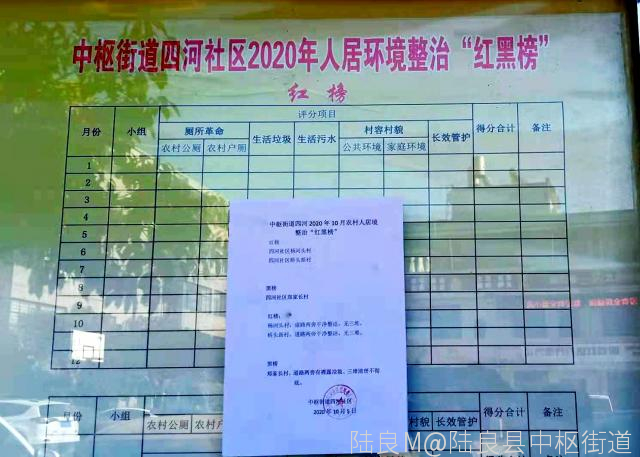 中枢街道四河社区2020年人居环境整治“红黑榜”
红 榜
月份 小组 评分项目 得分合计 备注
厕所革命 生活垃圾 生活污水 村容村貌 长效管护
农村公厕 农村户厕 公共环境 家庭环境
1
2
3
4
5
6
7
8
9
10
11
12
中枢街道四河 2020 年 10 月农村人居境
整治“红黑榜”
红榜
四河社区杨河头村
四河社区桥头新村
黑榜
四河社区郑家长村
红榜：
杨河头村，道路两旁干净整洁，无三堆。
桥头新村，道路两旁干净整洁，无三堆。
黑榜
郑家长村，道路两旁有裸露垃圾、三堆清理不彻
底。
中枢街道四河社区
2020 年 10 月 5 日
月份 小组 得分合计 备注
农村公厕 农村户厕 公共环境 家庭环境
陆良M@陆良县中枢街道